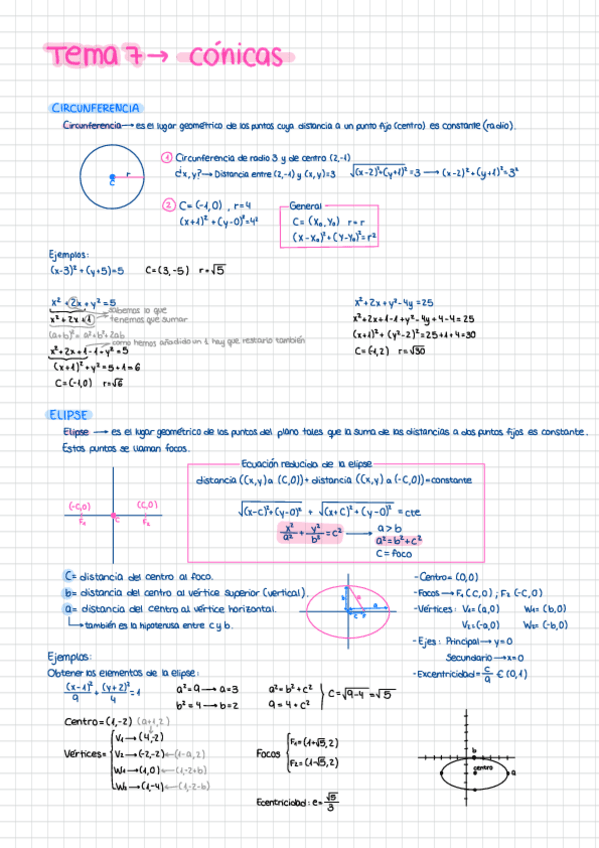 Tema 7 → cónicas
CIRCUNFERENCIA
Circunferencia → es el lugar geométrico de los puntos cuya distancia a un punto fijo (centro) es constante (radio).
r
C
① Circunferencia de radio 3 y de centro (2,-1)
¿x,y? → Distancia entre (2,-1) y (x,y)=3 √(x-2)²+(y+1)² = 3 → (x-2)²+(y+1)²=3²
② C=(-1,0), r=4
(x+1)²+(y-0)²=4²
General
C=(X₀,Y₀) r=r
(X-X₀)²+(Y-Y₀)²=r²
Ejemplos:
(x-3)²+(y+5)=5 C=(3,-5) r=√5
x²+2x+y²=5
sabemos lo que
x²+2x+1
tenemos que sumar
(a+b)²= a²+b²+2ab
como hemos añadido un 1 hay que restarlo también
x²+2x+1-1+y²=5
(x+1)²+y²=5+1=6
C=(-1,0) r=√6
x²+2x+y²-4y=25
x²+2x+1-1+y²-4y+4-4=25
(x+1)²+(y²-2)²=25+1+4=30
C=(-1,2) r=√30
ELIPSE
Elipse → es el lugar geométrico de los puntos del plano tales que la suma de las distancias a dos puntos fijos es constante.
Estos puntos se llaman focos.
(-C,0) (C,0)
F₂ C F₁
Ecuación reducida de la elipse
distancia ((x,y) a (C,0)) + distancia ((x,y) a (-C,0)) = constante
√(x-C)²+(y-0)² + √(x+C)²+(y-0)² = cte
x²/a² + y²/b² = c² → a>b
a²=b²+c²
C=foco
C= distancia del centro al foco.
b= distancia del centro al vértice superior (vertical).
a= distancia del centro al vértice horizontal.
también es la hipotenusa entre c y b.
b a a
c F
- Centro= (0,0)
- Focos → F₁(C,0); F₂(-C,0)
- Vértices: V₁=(a,0) W₁=(b,0)
V₂=(-a,0) W₂=(-b,0)
- Ejes: Principal → y=0
Secundario → x=0
- Excentricidad= c/a ∈ (0,1)
Ejemplos:
Obtener los elementos de la elipse:
(x-1)²/9 + (y+2)²/4 = 1
a²=9 → a=3
b²=4 → b=2
a²=b²+c²
9=4+c²
C=√9-4=√5
Centro=(1,-2) (a+1,2)
Vértices=
V₁ → (4,-2)
V₂ → (-2,-2) ← (1-a,2)
W₁ → (1,0) ← (1,-2+b)
W₂ → (1,-4) ← (1,-2-b)
Focos
F₁=(1+√5,2)
F₂=(1-√5,2)
Ecentricidad: e=√5/3
b
centro
a